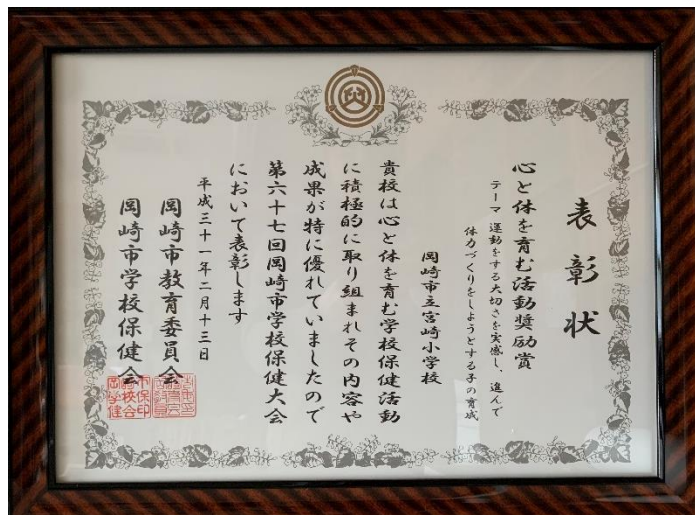 表彰状
心と体を育む活動奨励賞
テーマ 運動をする大切さを実感し、進んで
体力づくりをしようとする子の育成
岡崎市立宮崎小学校
貴校は心と体を育む学校保健活動
に積極的に取り組まれその内容や
成果が特に優れていましたので
第六十七回岡崎市学校保健大会
において表彰します
平成三十一年二月十三日
岡崎市教育委員会
岡崎市学校保健会